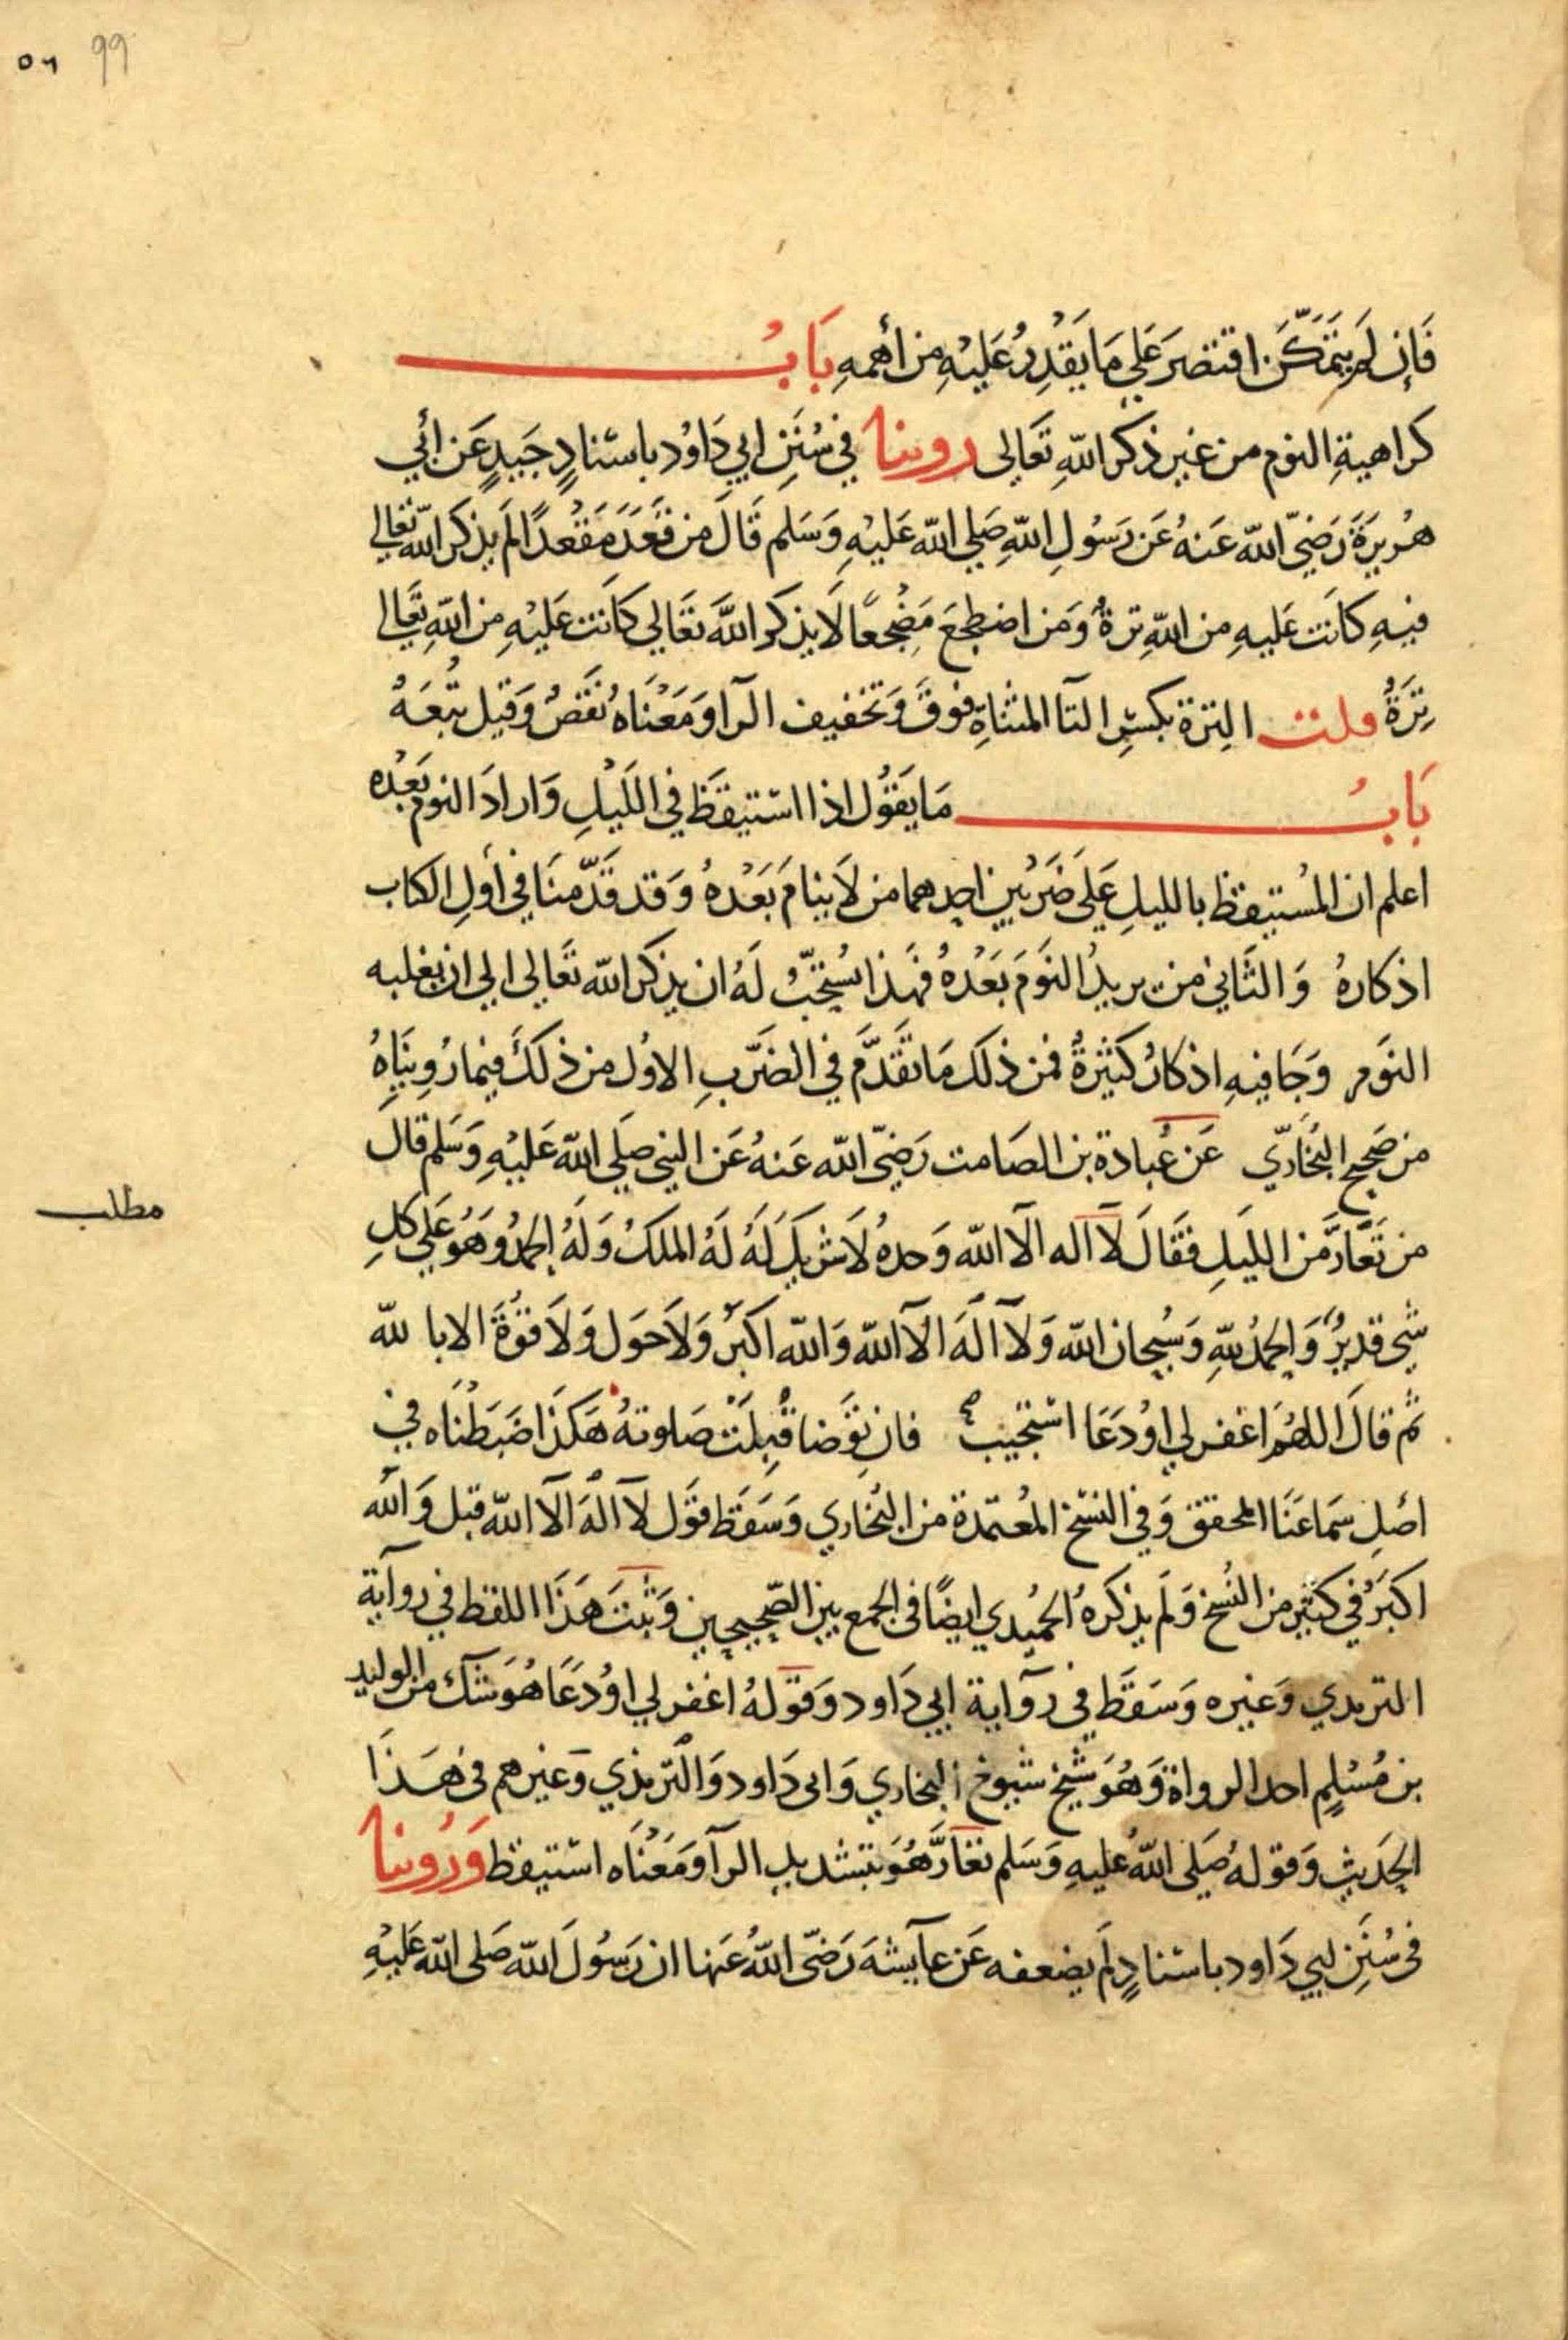 99 ٥٦
فَإِن لَم يتَمَكَّن اقتصَرَ عَلَي مَا يَقْدِرُ عَلَيْهِ من أهمهِ بَابُ
كراهيةِ النوم من غير ذكر اللهِ تعَالى روينا في سُنَنِ ابي دَاوُد باسنادٍ جَيدٍ عَن أبي
هُريرَةَ رَضيَ الله عَنهُ عَن رَسُولِ اللهِ صَلي الله عَليْهِ وَسَلم قَالَ من قَعَدَ مَقْعدًا لمَ يذكر الله تعَالي
فيهِ كانَت عَليهِ من اللهِ ترةٌ وَمَن اضطجعَ مَضْجعًا لَا يذكر اللهَ تعَالي كانَت عَليْهِ من اللهِ تعَالي
تِرَةٌ قلت التِرة بكسرِ التآ المثناةِ فوقَ وَتخفيف الرآ وَمَعْنَاهُ نقصٌ وَقيل تبعَةٌ
بَابُ مَا يَقُول اذا استيقظَ في الليْلِ وَارادَ النوم بَعْده
اعلم ان المُستيقظ بالليلِ عَلَى ضَرْبين احدهما من لَا ينامَ بَعْدهُ وَقد قدَّمنَا في أولِ الكتاب
اذكارهُ وَالثَّاني من يريدُ النوَمَ بَعْدهُ فهَذا يُستحَبُّ لَهُ ان يذكر الله تعَالى الي ان يغلبه
النوَم وَجَا فيهِ اذكارٌ كثيرةٌ فمن ذلكَ مَا تقَدَّم في الضَربِ الاول من ذلكَ فيما رُوينَاهُ
من صَحيح البُخَاريّ عَن عُبادة بن الصَامت رَضيَ الله عَنهُ عَن النبي صَلَي الله عَليْهِ وَسَلم قال
من تَعَارَّ من الليَلِ فقَالَ لآ اله الآ الله وَحدهُ لَا شريك لَهُ لَهُ الملكُ وَلَهُ الحمدُ وَهُوَ عَلي كلِ
مطلب
شيٍ قديرٌ وَالحمدُ للهِ وَسُبحان الله وَلآ الَهَ الآ الله وَالله اكبرَ وَلاَ حَول وَلَا قوُةَ الا بالله
ثم قالَ اللهُمَ اغفر لي اوُ دَعَا استجيب فان توَضا قُبلَتْ صَلوتهُ هَكذا ضَبَطْنَاه في
اصْلِ سَمَاعنَا المحقق وَفي النسَخ المُعتمدة من البُخاري وَسَقَطَ قوَل لآ الهَ الآ الله قبل وَالله
اكبَرُ في كثيرٍ من النُسخ وَلَم يذكرهُ الحُميدي ايضًا في الجمع بين الصَحيحين وَثبتَ هَذَا اللفظ في روآية
الترمذي وَغيره وَسَقَطَ في روآية ابي دَاود وَقوَلهُ اغفر لي اوُ دَعَا هُوَ شكٌ من الوليد
بن مُسْلمٍ احد الرواة وَهُوَ شيخ شيوخ البخاري وَابي دَاود وَالترمذي وَغيرهم في هَذَا
الحدَيثِ وَقوله صَلَى اللهُ عليهِ وَسَلم تعَارَّ هُوَ بتشديد الرآ وَمَعْنَاه استيقظ وَرُوينا
في سُنَنِ ابي دَاود باسنادٍ لَم يضعفه عَن عآيشةَ رَضيَ اللهُ عَنها ان رَسُولَ الله صَلى الله عَليْهِ